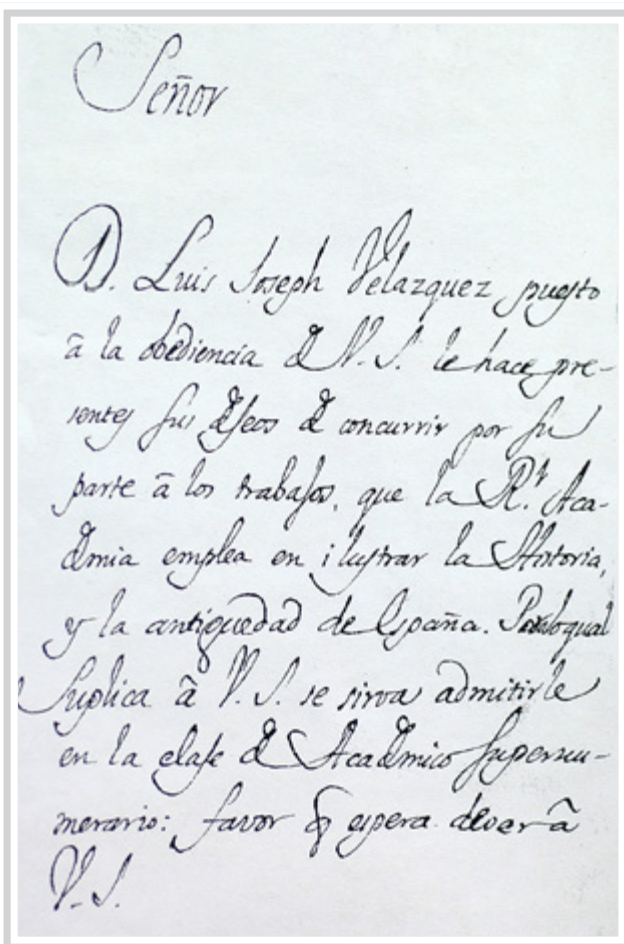 Señor
D. Luis Joseph Velazquez, puesto
â la obediencia de V. S. le hace pre-
sentes sus deseos de concurrir por su
parte â los trabajos, que la Rl. Aca-
demia emplea en ilustrar la Historia,
y la antiguedad de España. Por lo qual
suplica â V. S. se sirva admitirle
en la clase de Academico supernu-
merario: favor q espera dever â
V. S.